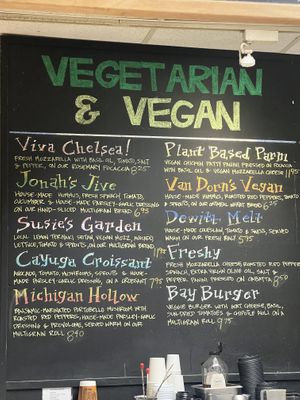 VEGETARIAN
& VEGAN
Viva Chelsea!
FRESH MOZZARELLA WITH BASIL OIL, TOMATO, SALT
& PEPPER, ON OUR ROSEMARY FOCACCIA 8.25
Jonah's Jive
HOUSE-MADE HUMMUS, FRESH SPINACH, TOMATO,
CUCUMBER & HOUSE-MADE PARSLEY-GARLIC DRESSING
ON OUR HAND-SLICED MULTIGRAIN BREAD 6.95
Susie's Garden
LOCAL LEMON FENNEL SEY VEGAN MOZZ, AVOCADO
LETTUCE, TOMATO & SPROUTS, ON OUR MULTIGRAIN BREAD
Cayuga Croissant
AVOCADO, TOMATO, MUSHROOMS, SPROUTS & HOUSE-
MADE PARSLEY-GARLIC DRESSING, ON A CROISSANT 7.95
Michigan Hollow
BALSAMIC-MARINATED PORTOBELLO MUSHROOM WITH
ROASTED RED PEPPERS, HOUSE-MADE PARSLEY-GARLIC
DRESSING & PROVOLONE, SERVED WARM ON OUR
MULTIGRAIN ROLL 8.40
Plant Based Parm
VEGAN CHICKEN PATTY PANINI PRESSED ON FOCACCIA
WITH BASIL OIL & VEGAN MOZZARELLA CHEESE 11.95
Van Dorn's Vegan
HOUSE-MADE HUMMUS, ROASTED RED PEPPERS, TOMATO
& SPROUTS, ON OUR WHEAT BREAD 6.25
Dewitt Melt
HOUSE-MADE TOMATO & SERVED
WARM ON OUR FRESH 5.75
Freshy
FRESH MOZZARELLA CHEESE, ROASTED RED PEPPER,
SPINACH, EXTRA VIRGIN OLIVE OIL, SALT &
PEPPER PANINI PRESSED ON CIABATTA 8.50
Bay Burger
VEGGIE BURGER WITH GOAT CHEESE, BASIL,
SUN-DRIED TOMATOES & CHIPOTLE MAYO ON A
MULTIGRAIN ROLL 9.75